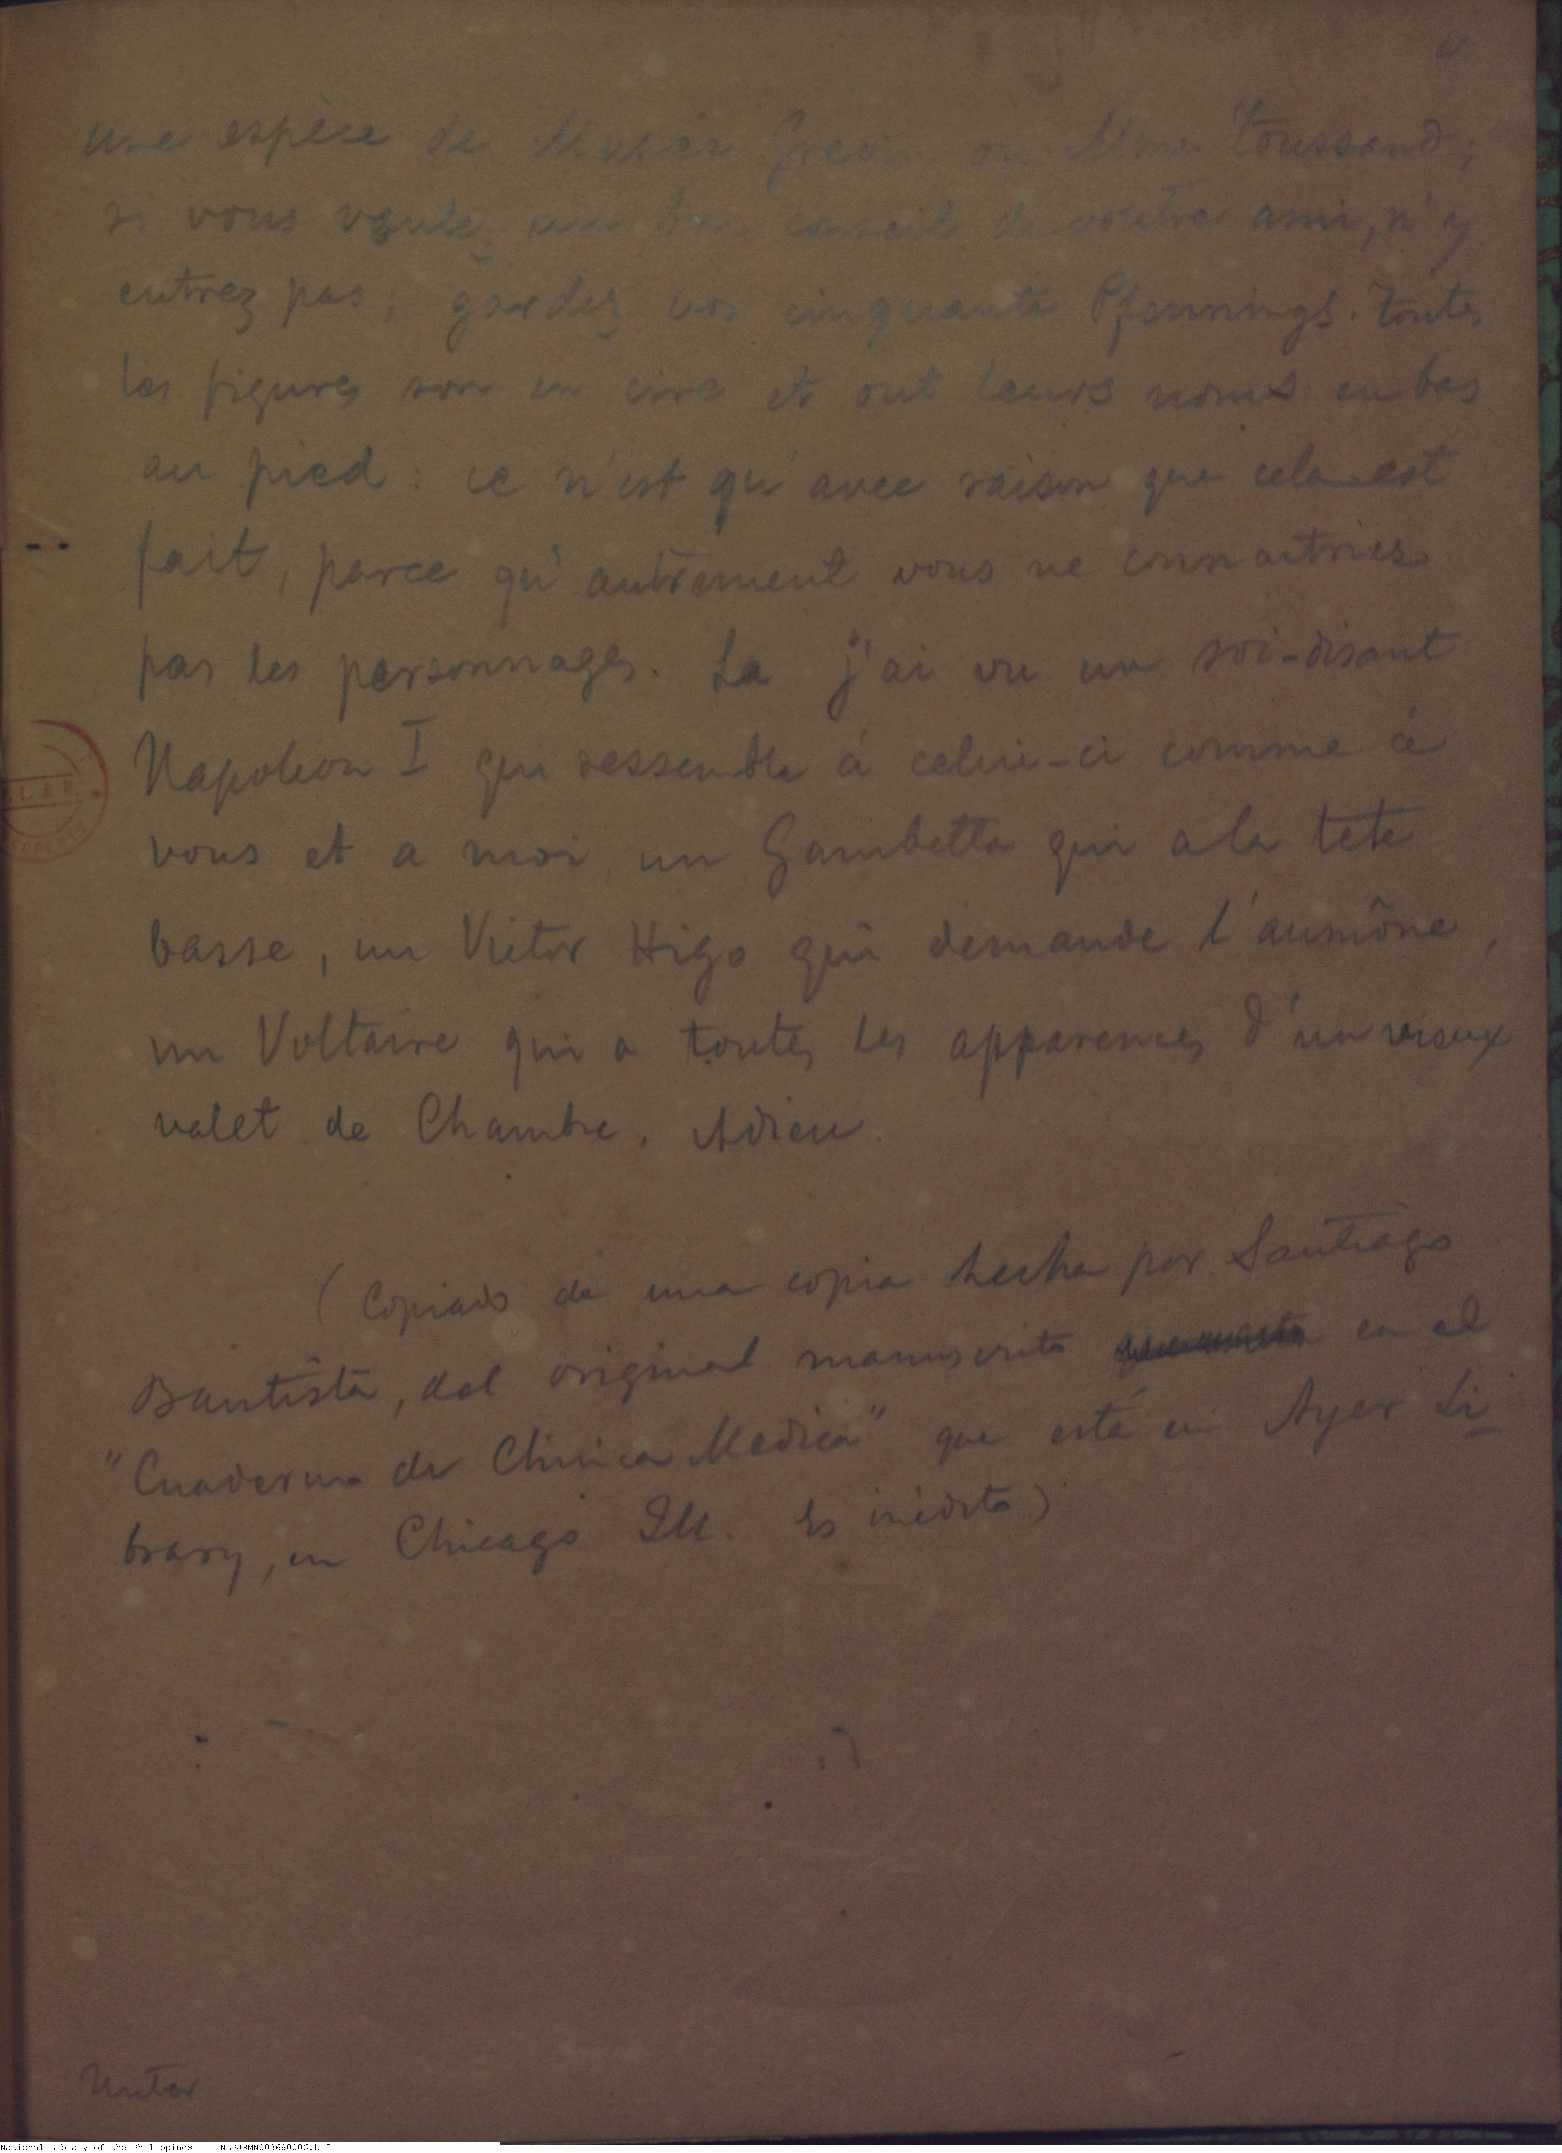 une espèce de Musée Grevin ou Mme Toussaud;
si vous voulez un bon conseil de votre ami, n'y
entrez pas; gardez vos cinquante Pfennings. Toutes
les figures son en cire et ont leurs noms en bas
au pied: ce n'est qu'avec raison que cela est
fait, parce qu'autrement vous ne connaitries
pas les personnages. La j'ai vu un soi-disant
Napoleon I qui ressemble á celui-ci comme á
vous et a moi, un Gambetta qui a la tete
basse, un Victor Higo qui demande l'aumône,
un Voltaire qui a toutes les apparences d'un vieux
valet de Chambre. Adieu.
(Copiado de una copia hecha por Santiago
Bautista, del original manuscrito en el
"Cuaderno de Clinica Medica" que está en Ayer Li
brary, en Chicago Ill. Es inédito)
National Library of the Philippines